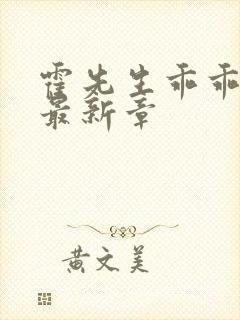 霍先生乖乖
最新章
黄文美